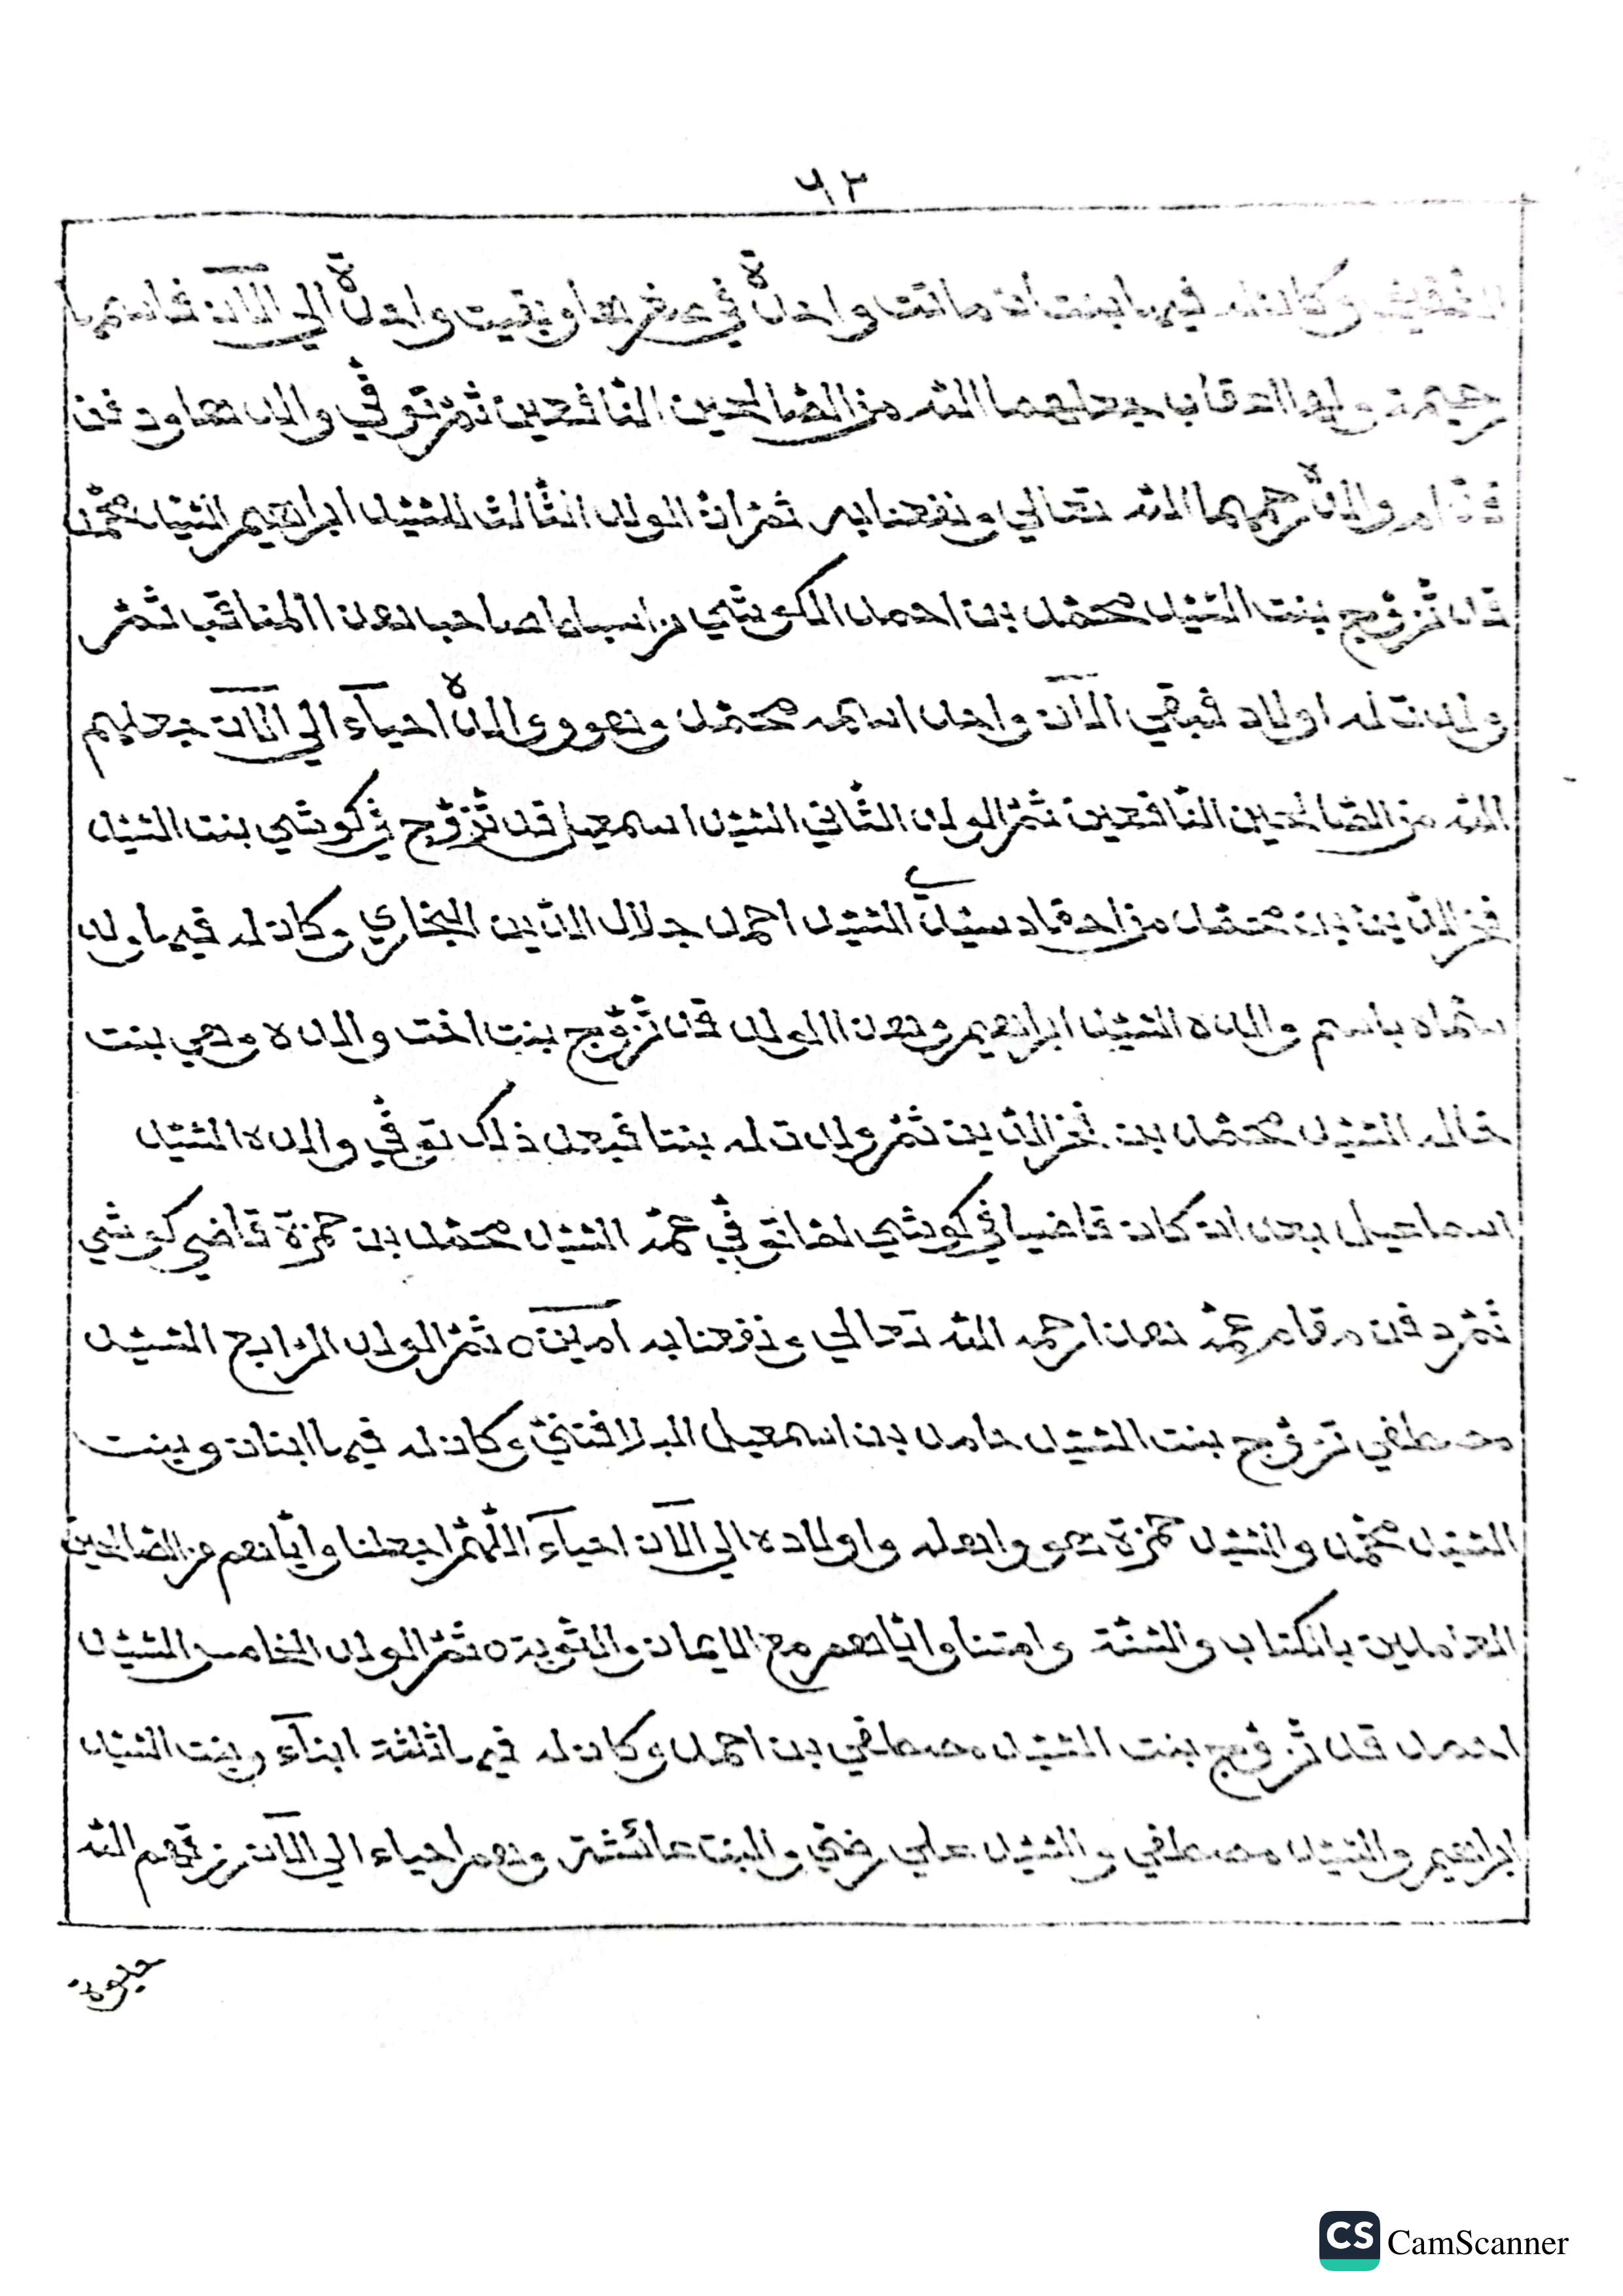 ٦٣
وكان له فيها بنتان ماتت واحدة في صغرها وبقيت واحدة الي الآن فاسمها
رحيمة ولها احقاب جعلهما الله من الصّالحين النّافعين ثمّ توفّي والدتها ودفن
والدة رحمهما الله تعالي ونفعنا به ثمّ انّ الولد الثّالث للسّيّد ابراهيم السّيّد محمّد
قد تزوّج بنت السّيّد محمّد بن احمد الكوشي من اسباط صاحب هذا المناقب ثمّ
ولدت له اولاد فبقي الآن واحد اسمه محمّد وهو ووالدة احياء الي الآن جعلهم
الله من الصّالحين النّافعين ثمّ الولد الثّاني السّيّد اسمعيل قد تزوّج في كوشي بنت السّيّد
فخر الدّين بن محمّد من احفاد سيّدي السّيّد احمد جلال الدّين البخاري وكان له فيها ولد
سمّاه باسم والده السّيّد ابراهيم وهذا الولد قد تزوّج بنت اخت والده وهي بنت
خاله السّيّد محمّد بن فخر الدّين ثمّ ولدت له بنتا فبعد ذلك توفّي والده السّيّد
اسماعيل بعد ان كان قاضيا في كوشي لمّا توفّي عمّه السّيّد محمّد بن حمزة قاضي كوشي
ثمّ دفن مقام عمّه هذا رحمه الله تعالي ونفعنا به امين ه ثمّ الولد الرّابع السّيّد
مصطفي تزوّج بنت السّيّد حامد بن اسمعيل البلافتني وكان له فيها ابنان وبنت
السّيّد محمّد والسّيّد حمزة هو واهله واولاده الي الآن احياء اللّهمّ اجعلنا وايّاهم من الصّالحين
العاملين بالكتاب والسّنّة وامتنا وايّاهم مع الايمان والتّوبة ه ثمّ الولد الخامس السّيّد
احمد قد تزوّج بنت السّيّد مصطفي بن احمد وكان له فيها ثلثة ابناء وبنت السّيّد
ابراهيم والسّيّد مصطفي والسّيّد علي رضي والبنت عائشة وهم احياء الي الآن رزقهم الله
حيوة
CS CamScanner